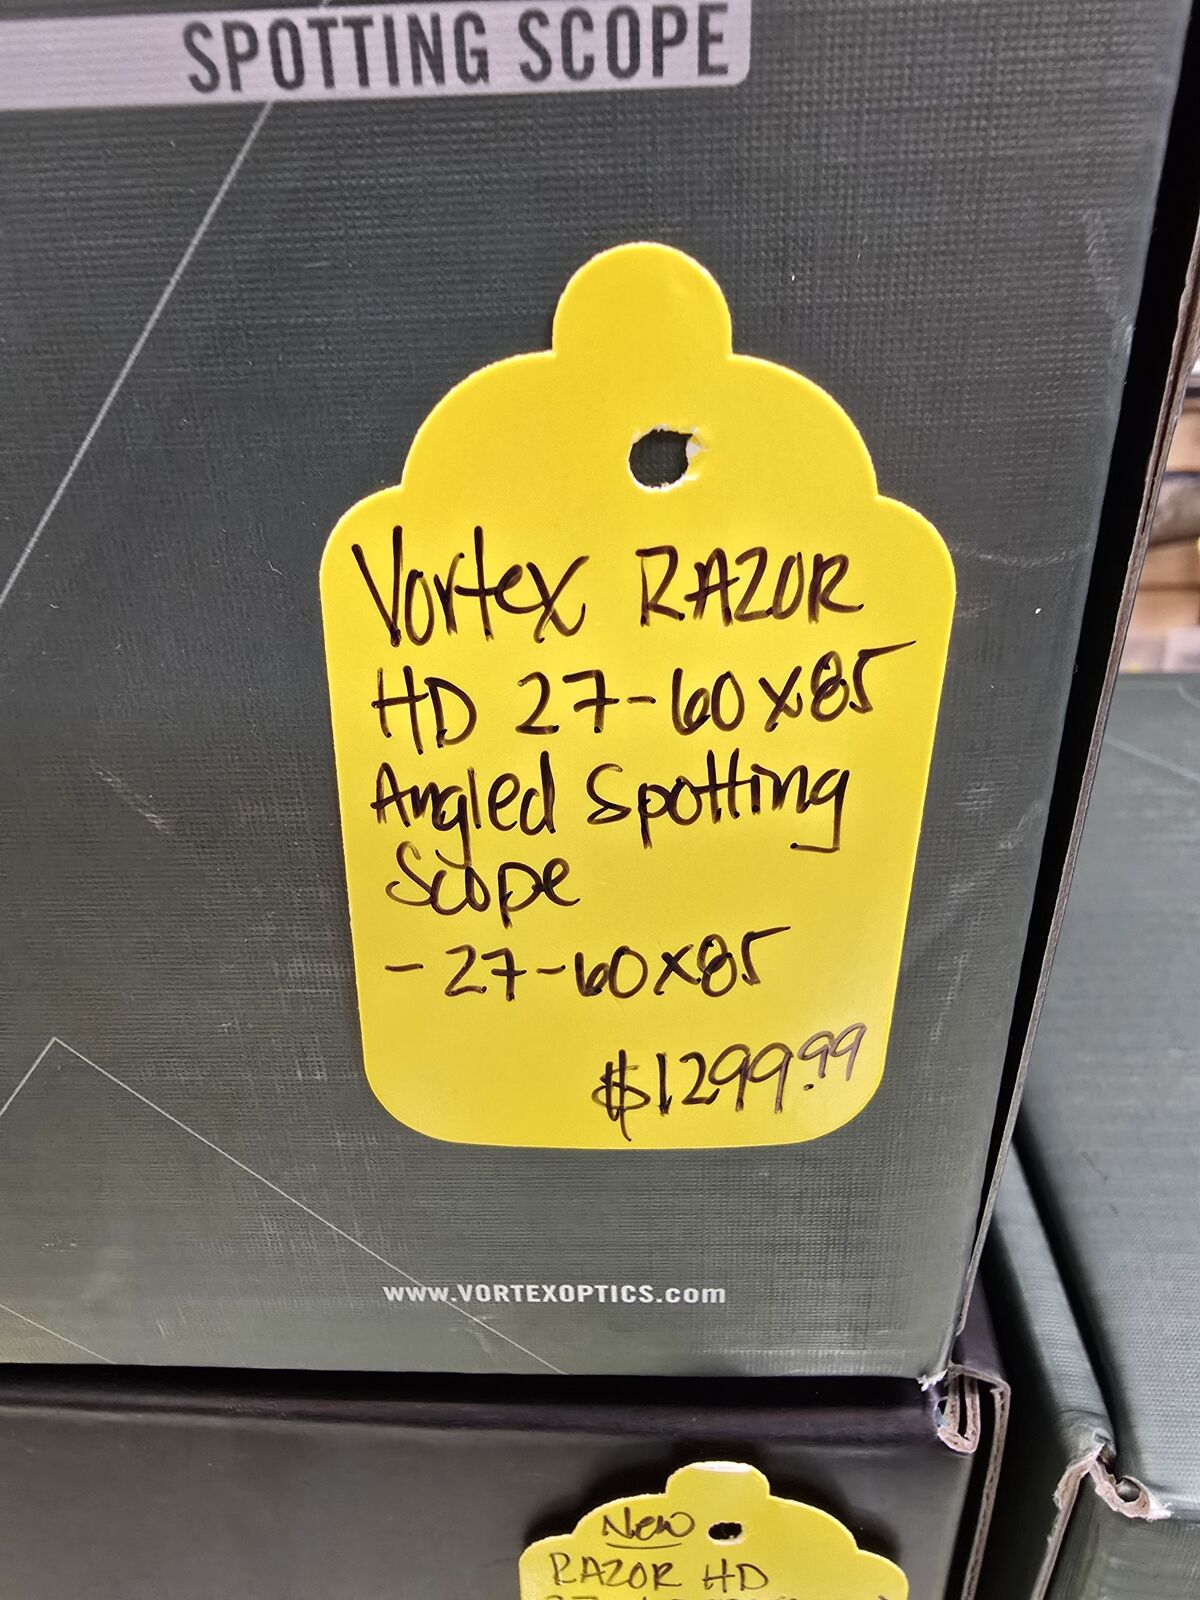 SPOTTING SCOPE
Vortex RAZOR
HD 27-60x85
Angled Spotting
Scope
- 27-60x85
$1299.99
www.VORTEXOPTICS.com
New
RAZOR HD